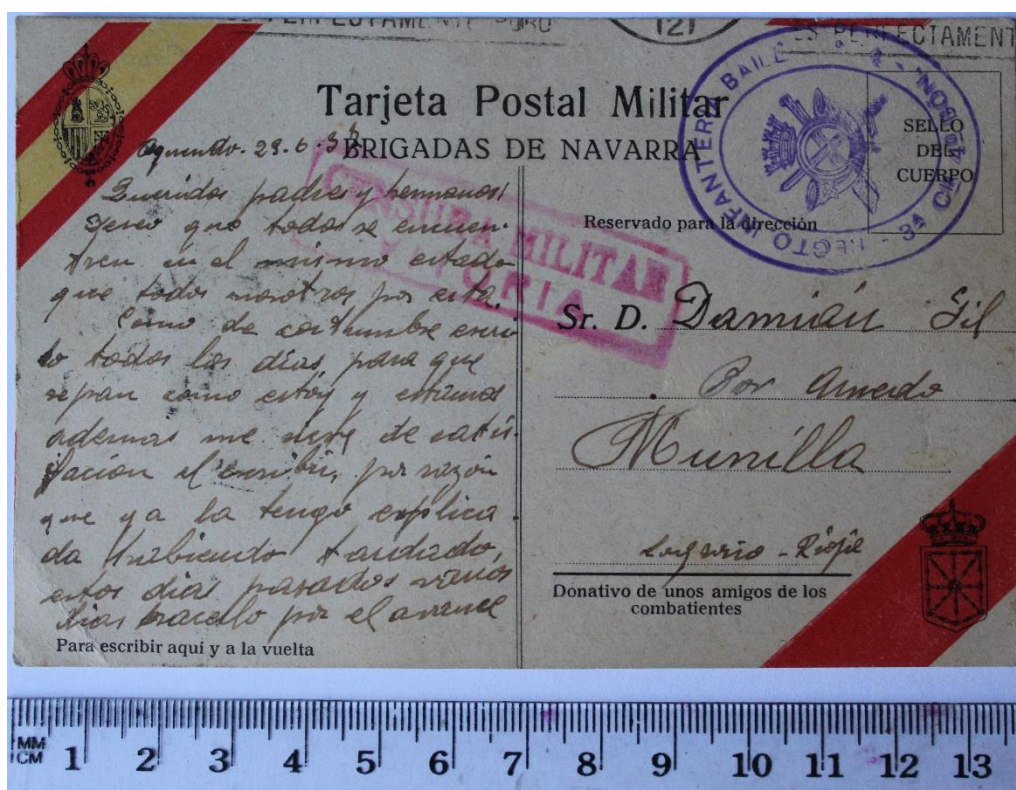 ES PERFECTAMENTE
121
ES PERFECTAMENT
Tarjeta Postal Militar
BRIGADAS DE NAVARRA
REGTO INFANTERIA BAILE
3ª CIA
SELLO
DEL
CUERPO
CENSURA MILITAR
Reservado para la dirección
29.6.
Queridos padres y hermanos:
que todos se encuen-
tren en el mismo estado
que todos nosotros por esta.
Como de costumbre escri-
bo todos los días, para que
sepan como estoy y estamos
ademas me sirve de satis-
facion el escribir, por razón
que ya la tengo explica-
da habiendo tardado,
estos dias pasados varios
dias hacello por el avance
Para escribir aquí y a la vuelta
Sr. D. Damián Gil
Por Arnedo
Munilla
Logroño - Rioja
Donativo de unos amigos de los
combatientes
MM
CM 1 2 3 4 5 6 7 8 9 10 11 12 13